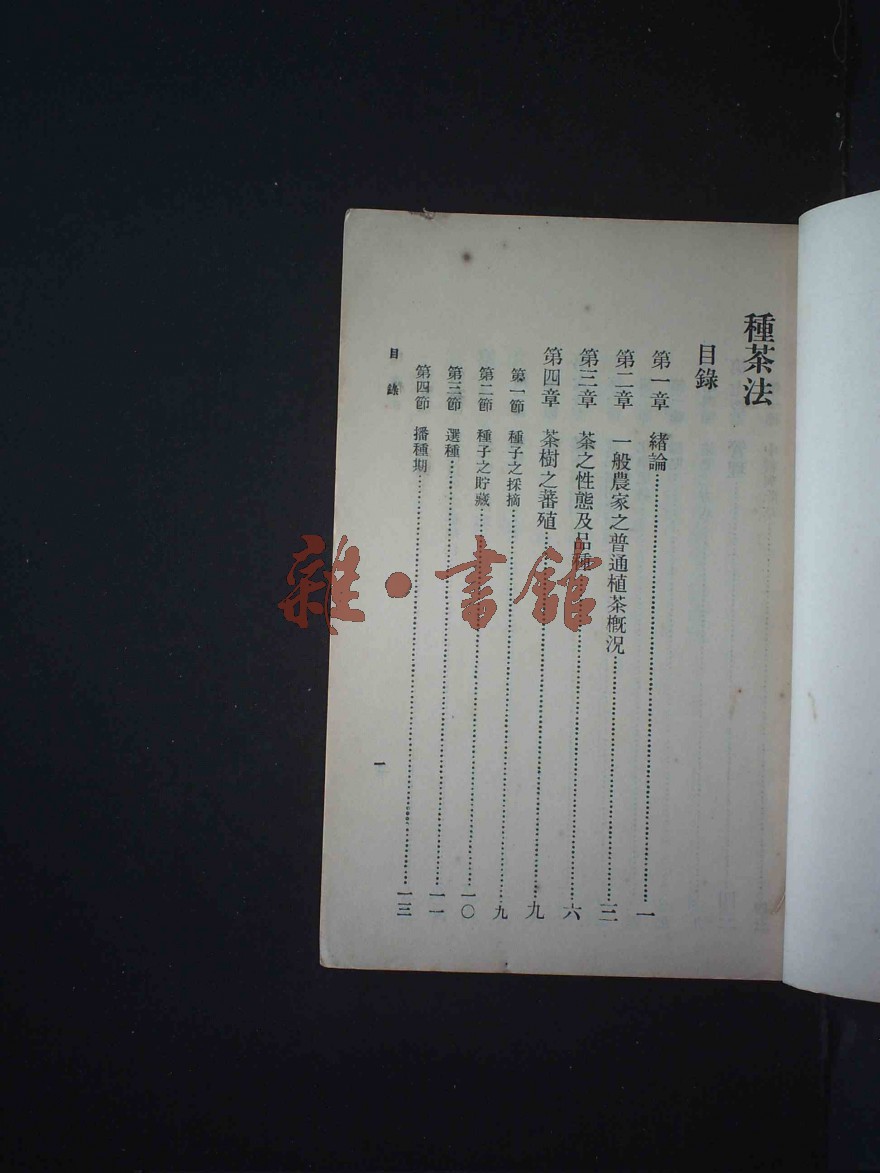 種茶法
目錄
第一章 緒論……一
第二章 一般農家之普通植茶概況……三
第三章 茶之性態及品種……六
第四章 茶樹之蕃殖……九
第一節 種子之採摘……九
第二節 種子之貯藏……一〇
第三節 選種……一一
第四節 播種期……一三
目錄
一
雜·書館